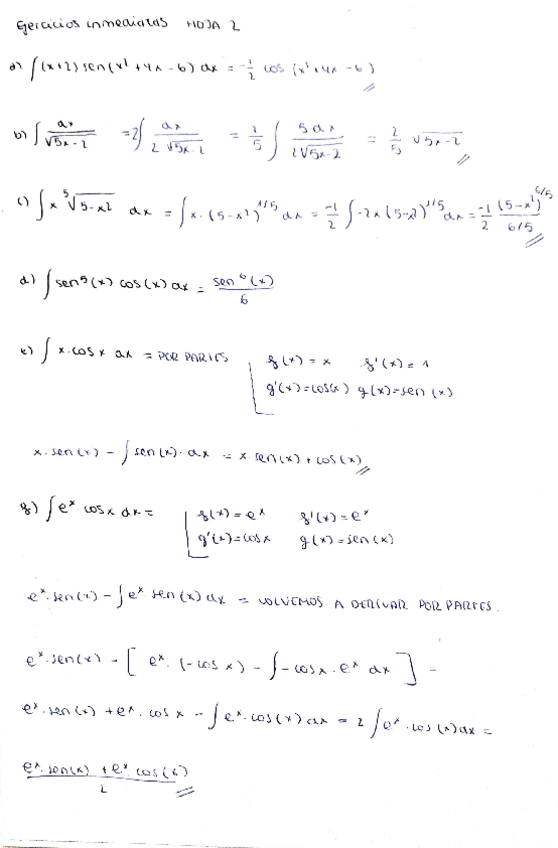 Ejercicios inmediatas HOJA 2
a) ∫(x+2) sen(x² + 4x - 6) dx = -1/2 cos (x² + 4x - 6)
b) ∫ dx/√5x-2 = 2∫ dx/2√5x-2 = 2/5 ∫ 5dx/2√5x-2 = 2/5 √5x-2
c) ∫ x ⁵√5-x² dx = ∫x·(5-x²)^1/5 dx = -1/2 ∫-2x (5-x²)^1/5 dx = -1/2 (5-x²)^6/5 / 6/5
d) ∫ sen⁵(x) cos(x) dx = sen⁶(x)/6
e) ∫ x·cos x dx = POR PARTES f(x) = x f'(x) = 1
g'(x) = cos(x) g(x) = sen(x)
x·sen(x) - ∫sen(x)·dx = x·sen(x) + cos(x)
f) ∫eˣ cos x dx = f(x) = eˣ f'(x) = eˣ
g'(x) = cos x g(x) = sen(x)
eˣ·sen(x) - ∫eˣ sen(x) dx = VOLVEMOS A DERIVAR POR PARTES.
eˣ·sen(x) - [ eˣ·(-cos x) - ∫-cos x·eˣ dx ] =
eˣ·sen(x) + eˣ·cos x - ∫eˣ·cos(x) dx = 2 ∫eˣ·cos(x) dx =
eˣ·sen(x) + eˣ cos(x) / 2